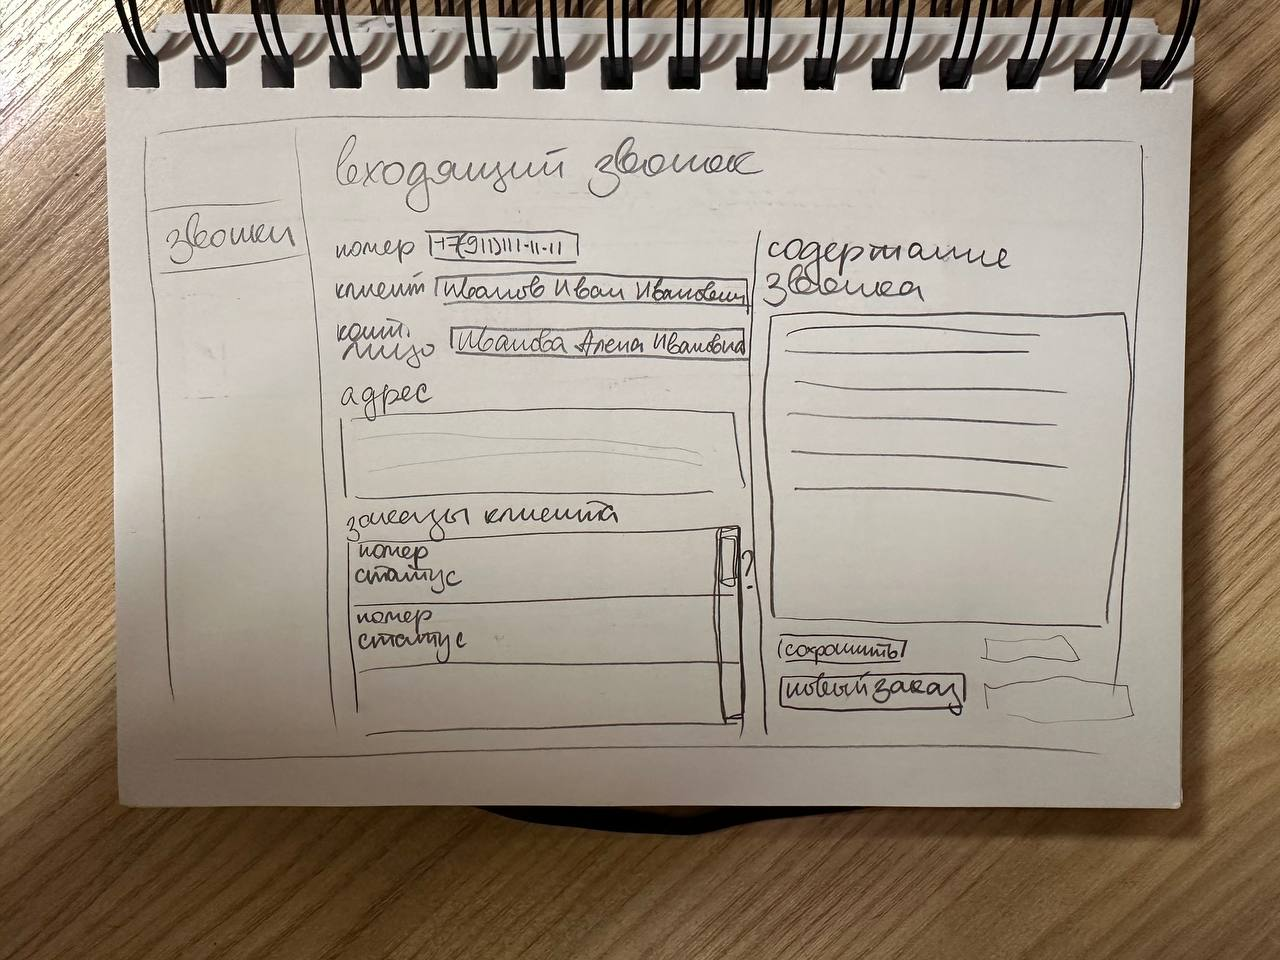 входящий звонок
звонки
номер +7(911)111-11-11
клиент Иванов Иван Иванович
конт.
лицо Иванова Алена Ивановна
адрес
заказы клиента
номер
статус
номер
статус
?
содержание
звонка
сохранить
новый заказ